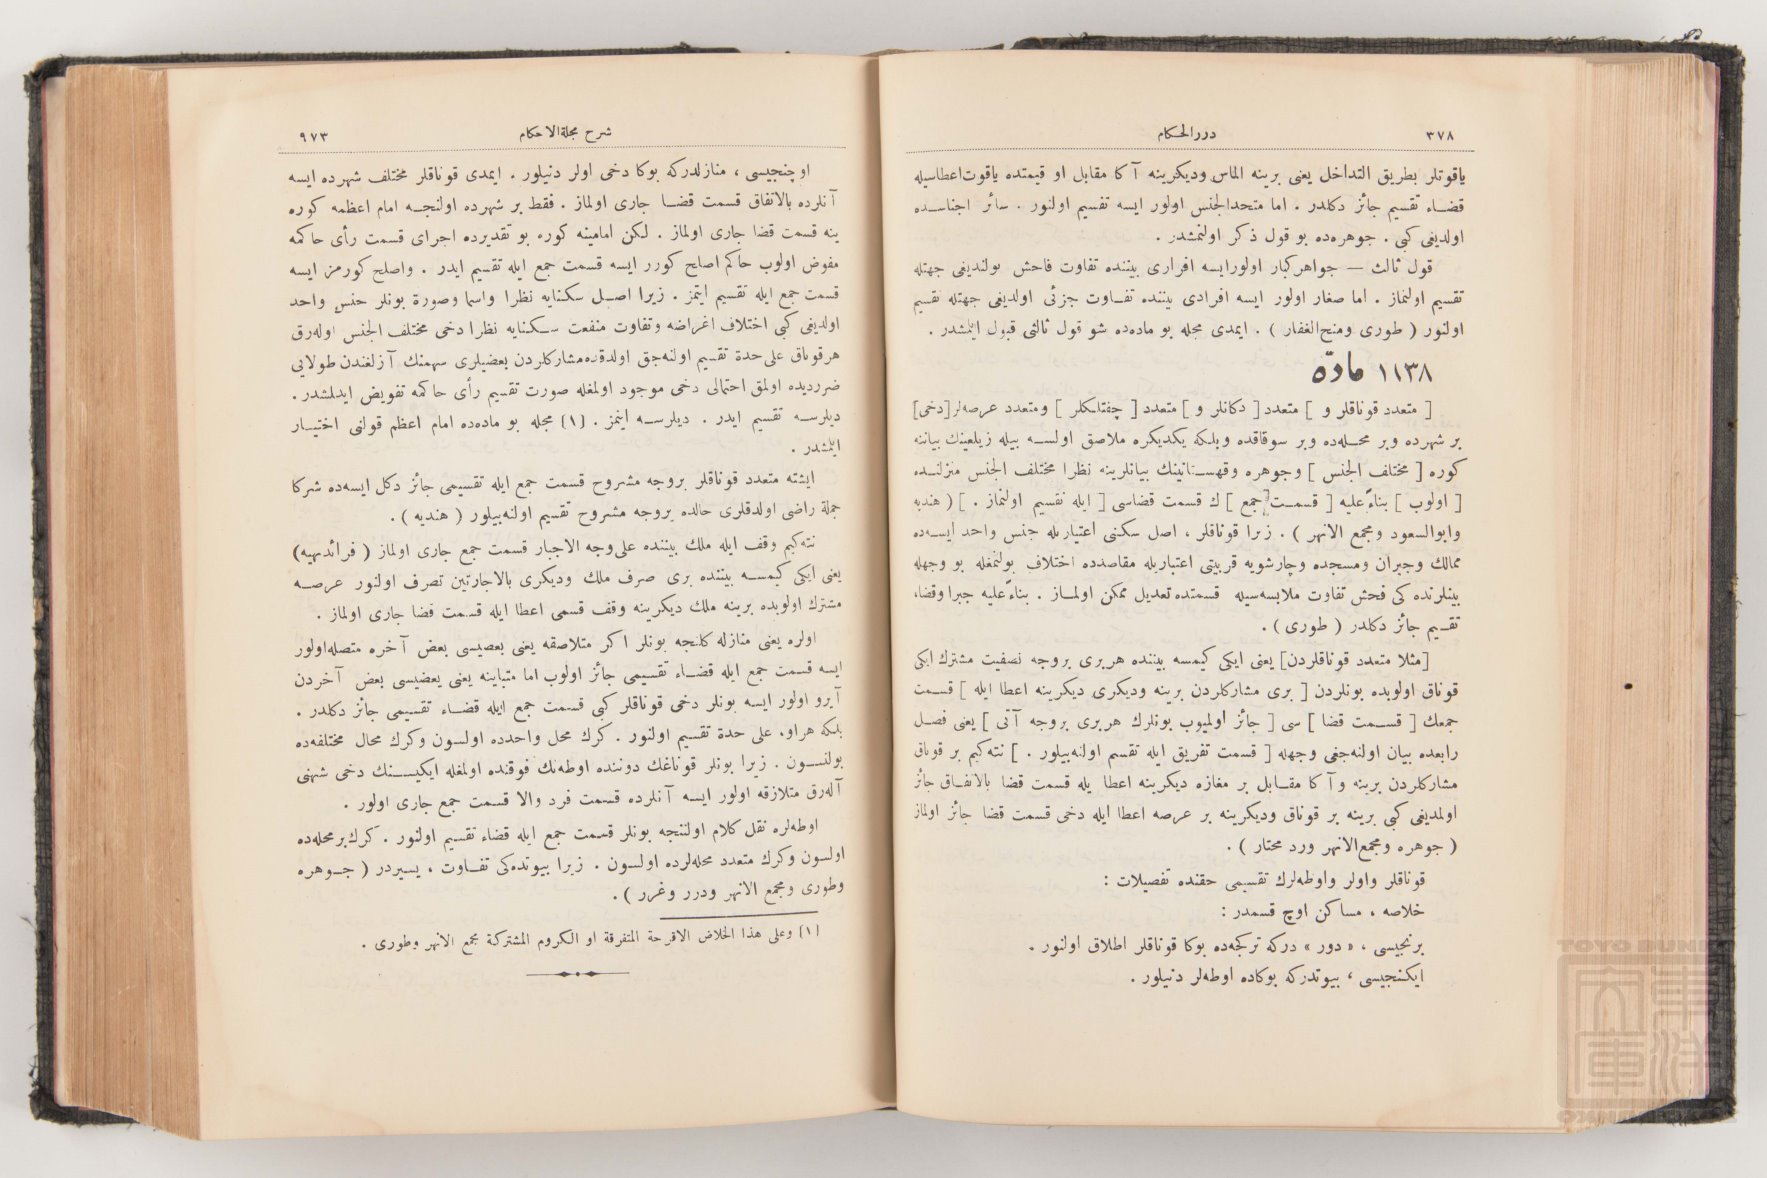 ٣٧٨
دررالحكام
ياقوتلر بطريق التداخل يعنى برينه الماس وديكرينه آكا مقابل او قيمتده ياقوت اعطاسيله
قضاء تقسيم جائز دكلدر . اما متحدالجنس اولور ايسه تقسيم اولنور . سائر اجناسده
اولديغى كبى . جوهره‌ده بو قول ذكر اولنمشدر .
قول ثالث — جواهر كبار اولورايسه افرارى بيننده تفاوت فاحش بولنديغى جهتله
تقسيم اولنماز . اما صغار اولور ايسه افرادى بيننده تفاوت جزئى اولديغى جهتله تقسيم
اولنور ( طورى ومنح‌الغفار ) . ايمدى مجله بو ماده‌ده شو قول ثالثى قبول ايتمشدر .
١١٣٨ مادّه
[ متعدد قوناقلر و ] متعدد [ دكانلر و ] متعدد [ چفتلكلر ] ومتعدد عرصه‌لر [دخى]
بر شهرده وبر محله‌ده وبر سوقاقده وبلكه يكديكره ملاصق اولسه بيله زيلعينك بياننه
كوره [ مختلف الجنس ] وجوهره وقهستانينك بيانلرينه نظرا مختلف الجنس منزلنده
[ اولوب ] بناءً عليه [ قسمت جمع ] ك قسمت قضاسى [ ايله تقسيم اولنماز . ] ( هنديه
وابوالسعود ومجمع الانهر ) . زيرا قوناقلر ، اصل سكنى اعتباريله جنس واحد ايسه‌ده
ممالك وجيران ومسجده وچارشويه قربيتى اعتباريله مقاصدده اختلاف بولنمغله بو وجهله
بينلرنده كى فحش تفاوت ملابسه‌سيله قسمتده تعديل ممكن اولماز . بناءً عليه جبرا وقضاء
تقسيم جائز دكلدر ( طورى ) .
[مثلا متعدد قوناقلردن] يعنى ايكى كيمسه بيننده هربرى بروجه نصفيت مشترك ايكى
قوناق اولوبده بونلردن [ برى مشاركلردن برينه وديكرى ديكرينه اعطا ايله ] قسمت
جمعك [ قسمت قضا ] سى [ جائز اولميوب بونلرك هربرى بروجه آتى ] يعنى فصل
رابعده بيان اولنه‌جغى وجهله [ قسمت تفريق ايله تقسم اولنه‌بيلور . ] نته‌كيم بر قوناق
مشاركلردن برينه و آكا مقابل بر مغازه ديكرينه اعطا يله قسمت قضا بالاتفاق جائز
اولمديغى كبى برينه بر قوناق وديكرينه بر عرصه اعطا ايله دخى قسمت قضا جائز اولماز
( جوهره ومجمع‌الانهر ورد محتار ) .
قوناقلر واولر واوطه‌لرك تقسيمى حقنده تفصيلات :
خلاصه ، مساكن اوچ قسمدر :
برنجيسى ، « دور » دركه تركجه‌ده بوكا قوناقلر اطلاق اولنور .
ايكنجيسى ، بيوتدركه بوكاده اوطه‌لر دنيلور .
شرح مجلةالاحكام
٩٧٣
اوچنجيسى ، منازلدركه بوكا دخى اولر دنيلور . ايمدى قوناقلر مختلف شهرده ايسه
آنلرده بالاتفاق قسمت قضا جارى اولماز . فقط بر شهرده اولنجه امام اعظمه كوره
ينه قسمت قضا جارى اولماز . لكن امامينه كوره بو تقديرده اجراى قسمت رأى حاكمه
مفوض اولوب حاكم اصلح كورر ايسه قسمت جمع ايله تقسيم ايدر . واصلح كورمز ايسه
قسمت جمع ايله تقسيم ايتمز . زيرا اصل سكنايه نظرا واسما وصورة بونلر جنس واحد
اولديغى كبى اختلاف اغراضه وتفاوت منفعت سكنايه نظرا دخى مختلف الجنس اوله‌رق
هرقوناق على حدة تقسيم اولنه‌جق اولدقده مشاركلردن بعضيلرى سهمنك آزلغندن طولايى
ضررديده اولمق احتمالى دخى موجود اولمغله صورت تقسيم رأى حاكمه تفويض ايدلمشدر .
ديلرسه تقسيم ايدر . ديلرسه ايتمز . [١] مجله بو ماده‌ده امام اعظم قولنى اختيار
ايتمشدر .
ايشته متعدد قوناقلر بروجه مشروح قسمت جمع ايله تقسيمى جائز دكل ايسه‌ده شركا
جملة راضى اولدقلرى حالده بروجه مشروح تقسيم اولنه‌بيلور ( هنديه ) .
نته‌كيم وقف ايله ملك بيننده على‌وجه الاجبار قسمت جمع جارى اولماز ( فرائدبهيه)
يعنى ايكى كيمسه بيننده برى صرف ملك وديكرى بالاجارتين تصرف اولنور عرصه
مشترك اولوبده برينه ملك ديكرينه وقف قسمى اعطا ايله قسمت قضا جارى اولماز .
اولره يعنى منازله كلنجه بونلر اكر متلاصقه يعنى بعضيسى بعض آخره متصله‌اولور
ايسه قسمت جمع ايله قضاء تقسيمى جائز اولوب اما متباينه يعنى بعضيسى بعض آخردن
آيرو اولور ايسه بونلر دخى قوناقلر كبى قسمت جمع ايله قضاء تقسيمى جائز دكلدر .
بلكه هراو، على حدة تقسيم اولنور . كرك محل واحدده اولسون وكرك محال مختلفه‌ده
بولنسون . زيرا بونلر قوناغك دوننده اوطه‌نك فوقنده اولمغله ايكيسنك دخى شبهنى
آله‌رق متلازقه اولور ايسه آنلرده قسمت فرد والا قسمت جمع جارى اولور .
اوطه‌لره نقل كلام اولننجه بونلر قسمت جمع ايله قضاء تقسيم اولنور . كرك برمحله‌ده
اولسون وكرك متعدد محله‌لرده اولسون . زيرا بيوتده‌كى تفاوت ، يسيردر ( جوهره
وطورى ومجمع الانهر ودرر وغرر ) .
[١] وعلى هذا الخلاف الاقرحة المتفرقة او الكروم المشتركة مجمع الانهر وطورى .
TOYO BUNKO